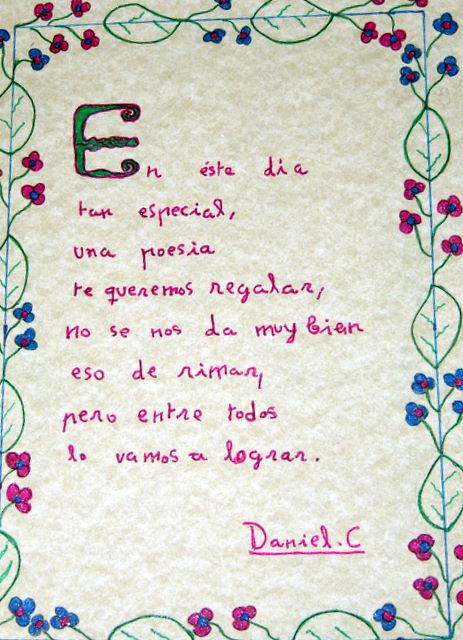 En éste dia
tan especial,
una poesia
te queremos regalar,
no se nos da muy bien
eso de rimar,
pero entre todos
lo vamos a lograr.
Daniel.C